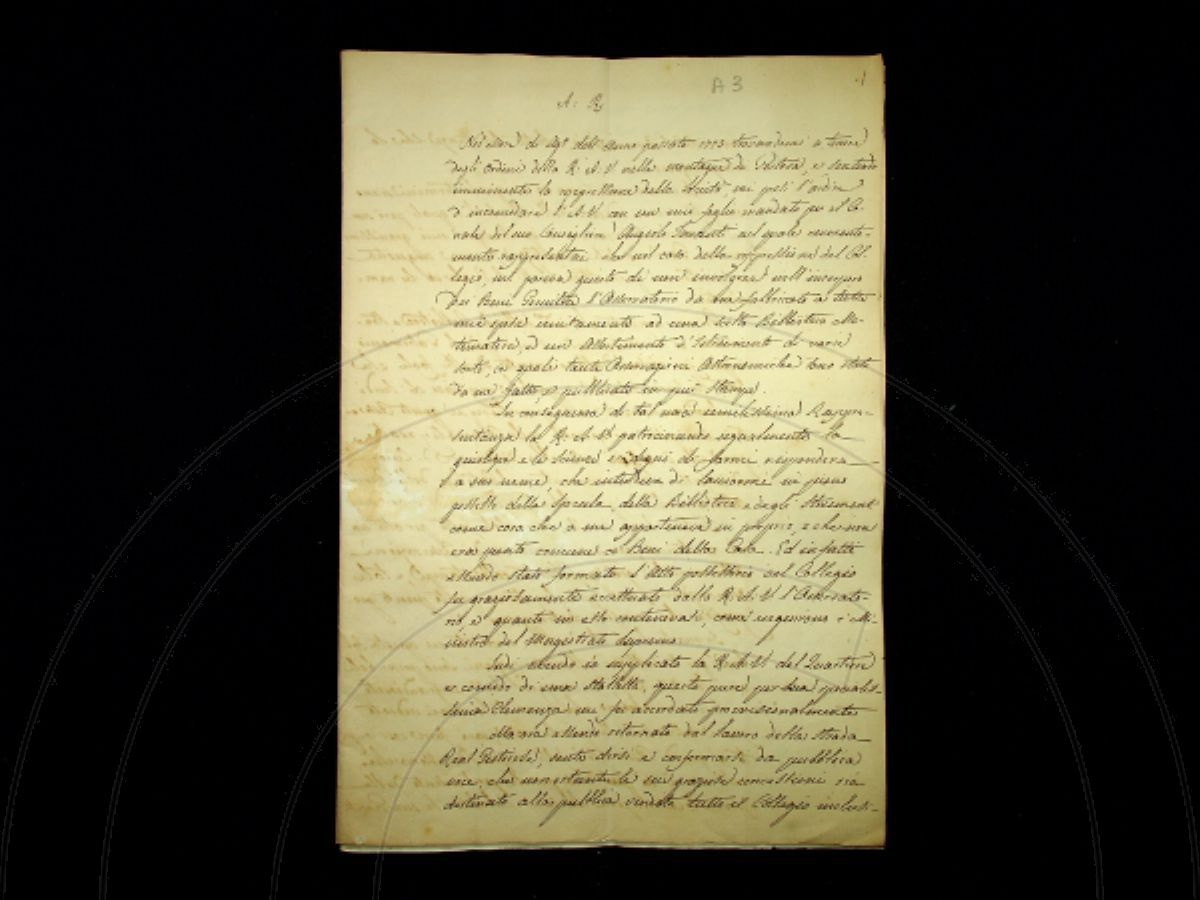 A 3
1
A. R.
Nel mese di Ag.º dell'anno passato 1773 trovandomi a tenore
degli ordini della R. A. V. nelle montagne di Pistoia, e sentendo
imminente la soppressione della Società, mi presi l'ardire
d'incomodare l'A. V. con un mio foglio mandato per il Ca-
nale del suo Consigliere Angelo nel quale
rappresentai che nel caso della soppressione del Col-
legio, mi pareva giusto di non involgere nell'incorporo
dei Beni Gesuitici l'Osservatorio da me fabbricato a tutte
mie spese unitamente ad una scelta Biblioteca Ma-
tematica, ed un Assortimento d'Istrumenti di varie
sorti, co quali tante Osservazioni Astronomiche sono state
da me fatte, e pubblicate in più stampe.
In conseguenza di tal mia umilissima Rappre-
sentanza la R. A. V. patrocinando egualmente la
giustizia e le scienze si degnò di farmi rispondere
a suo nome, che intendeva di lasciarmi in pieno
possesso della Specula, della Biblioteca e degli Strumenti
come cosa che a me apparteneva in proprio, e che non
era punto comune co Beni della Casa. Ed in fatti
essendo stato formato l'Atto possessorio nel Collegio
fu graziosamente eccettuato dalla R. A. V. l'Osservato-
rio, e quanto in esso contenevasi, come ingiunse i Mi-
nistri del Magistrato supremo.
Indi avendo io supplicato la R. A. V. del Quartiere
e comodo di una Stalletta, questo pure per sua specialis-
sima Clemenza mi fu accordato provvisionalmente
Ma ora essendo ritornato dal lavoro della strada
Real Pistoiese, sento dirsi e confermarsi da pubblica
voce, che nonostante le sue graziose concessioni sia
destinato alla pubblica vendita tutto il Collegio inclusi-